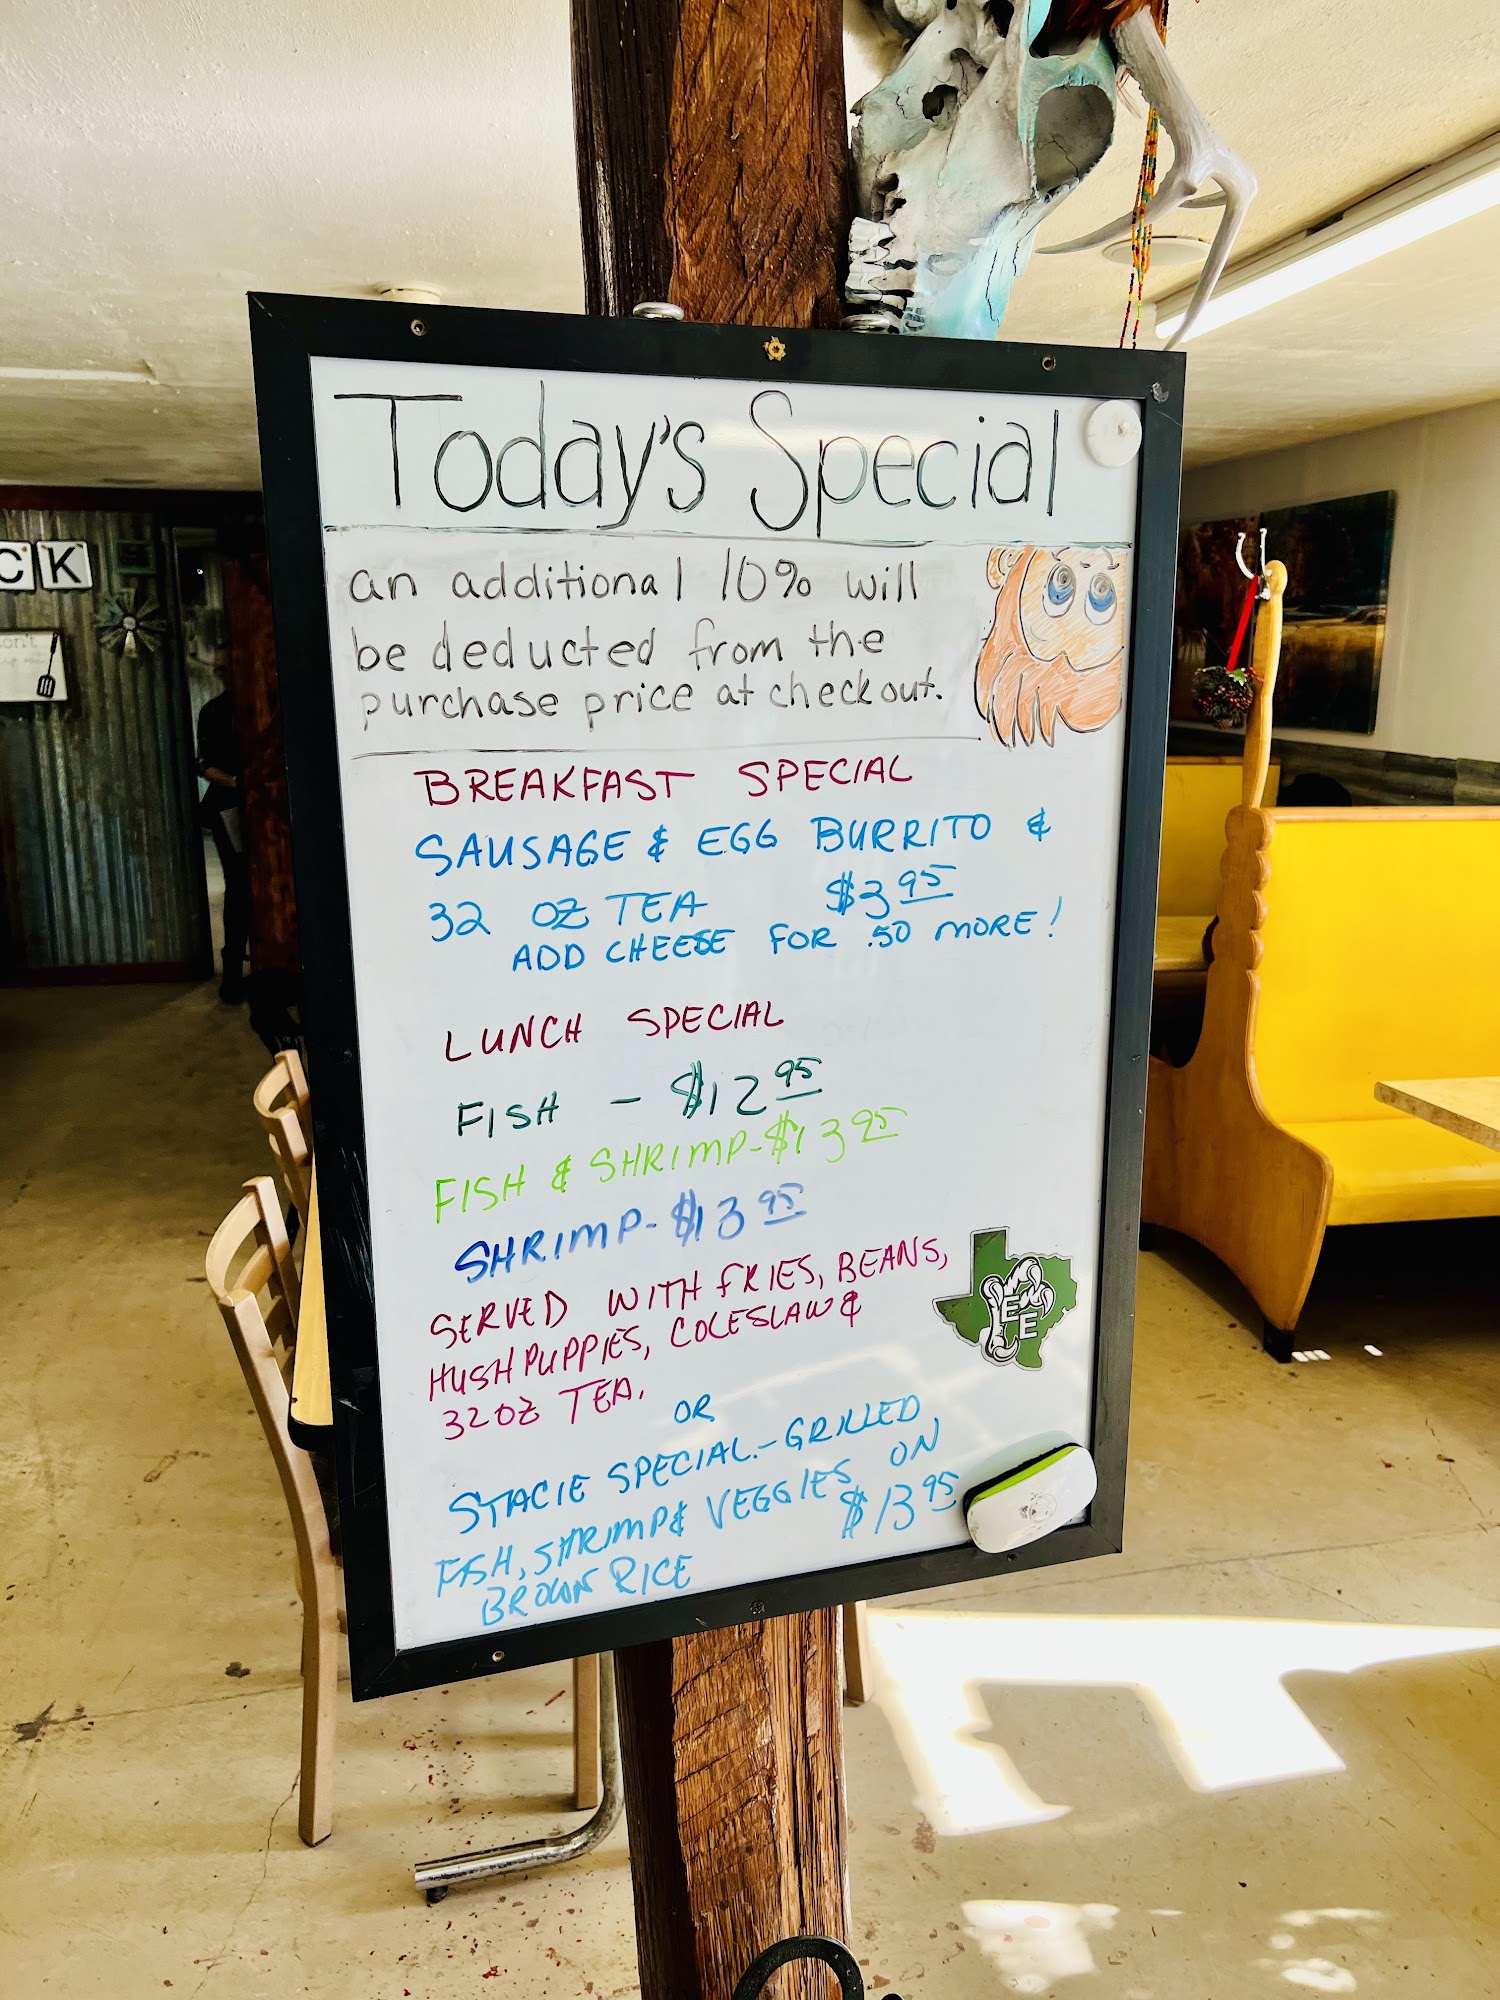 Today's Special
an additional 10% will
be deducted from the
purchase price at checkout.
BREAKFAST SPECIAL
SAUSAGE & EGG BURRITO &
32 OZ TEA $3.95
ADD CHEESE FOR .50 MORE!
LUNCH SPECIAL
FISH - $12.95
FISH & SHRIMP-$13.95
SHRIMP-$13.95
SERVED WITH FRIES, BEANS,
HUSHPUPPIES, COLESLAW &
32 OZ TEA.
OR
STACIE SPECIAL.-GRILLED
FISH, SHRIMP & VEGGIES ON
BROWN RICE $13.95
E
E
CK